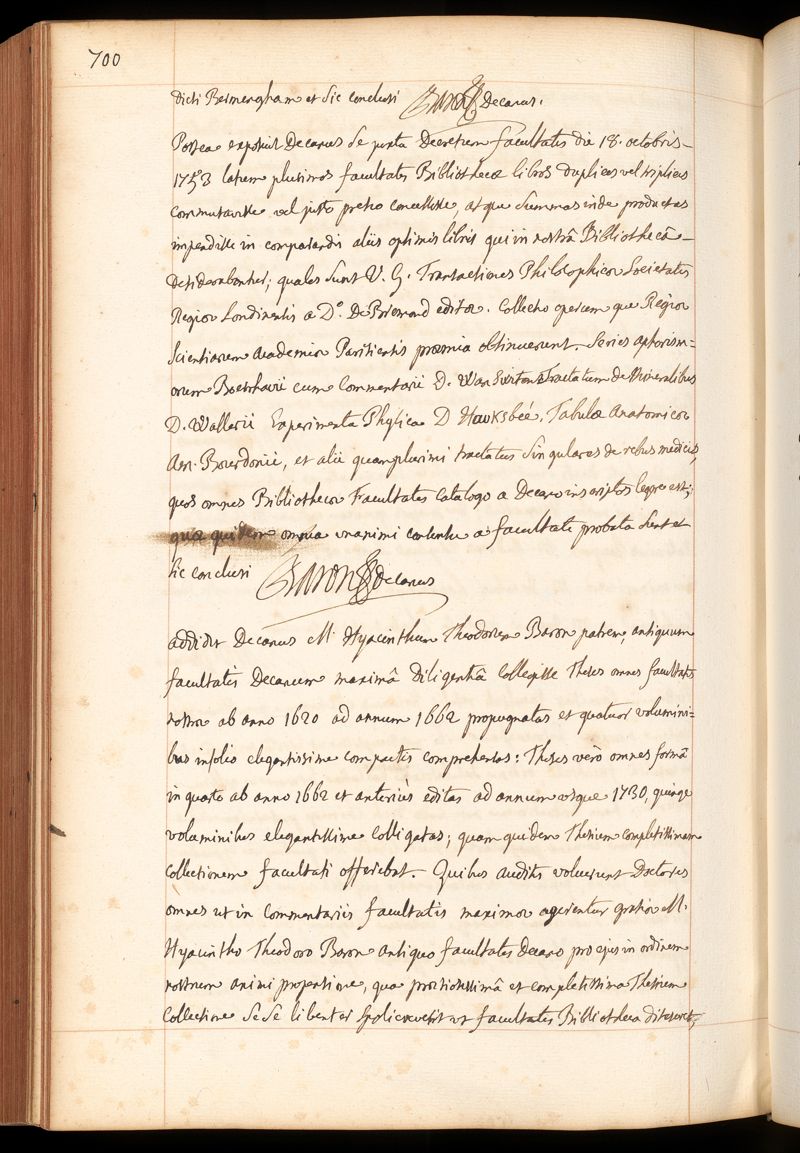 700
dicti Bermengham et sic conclusi Baron Decanus.
Postea exposuit Decanus se juxta Decretum facultatis die 18. octobris
1753 latum plurimos facultatis Bibliothecæ libros duplices vel triplices
commutavisse vel justo pretio concessisse, atque summas inde productas
impendisse in comparandis aliis optimis libris qui in nostrâ Bibliothecâ
desiderabantur; quales sunt V. G. Transactiones Philosophicæ Societatis
Regiæ Londinensis a D°. De Bremond editæ. Collectio operum quæ Regiæ
scientiarum Academiæ Parisiensis præmia obtinuerunt. Series aphorism-
orum Boerhavii cum Commentariis D. Wan Swieten Tractatum de Mineralibus
D. Wallerii Experimenta Physica D Hawksbée, Tabulæ Anatomicæ
Aen. Bourdonii, et alii quamplurimi tractatus singulares de rebus medicis,
quos omnes Bibliothecæ Facultatis Catalogo a Decano inscriptos legere est;
quæ quidem omnia unanimi consensu a facultate probata sunt et
sic conclusi Baron Decanus
addidit Decanus M. Hyacinthum Theodorum Baron patrem, antiquum
facultatis Decanum maximâ diligentiâ collegisse Theses omnes facultatis
nostræ ab anno 1620 ad annum 1662 propugnatas et quatuor volumini=
bus infolio elegantissime compactis comprehensas: Theses verò omnes formâ
in quarto ab anno 1662 et anteriùs editas ad annum usque 1730, quinque
voluminibus elegantissime colligatas; quam quidem Thesium completissimam
collectionem facultati offerebat. Quibus auditis voluerunt Doctores
omnes ut in Commentariis facultatis maximæ agerentur gratiæ M.
Hyacintho Theodoro Baron antiquo facultatis decano pro ejus in ordinem
nostrum animi propensione, qua pretiosissimâ et completissima Thesium
Collectione se se libenter spoliaverit ut facultatis Bibliotheca ditesceret;